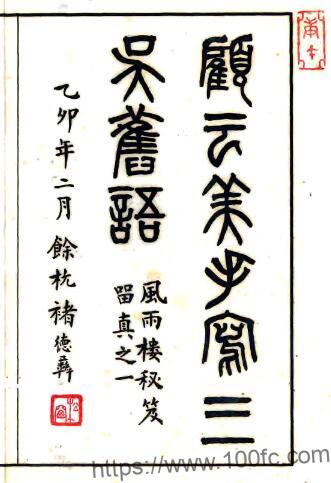 顧云美手寫三
吳舊語
風雨樓秘笈
留真之一
乙卯年二月 餘杭褚德彝
https://www.100fc.com